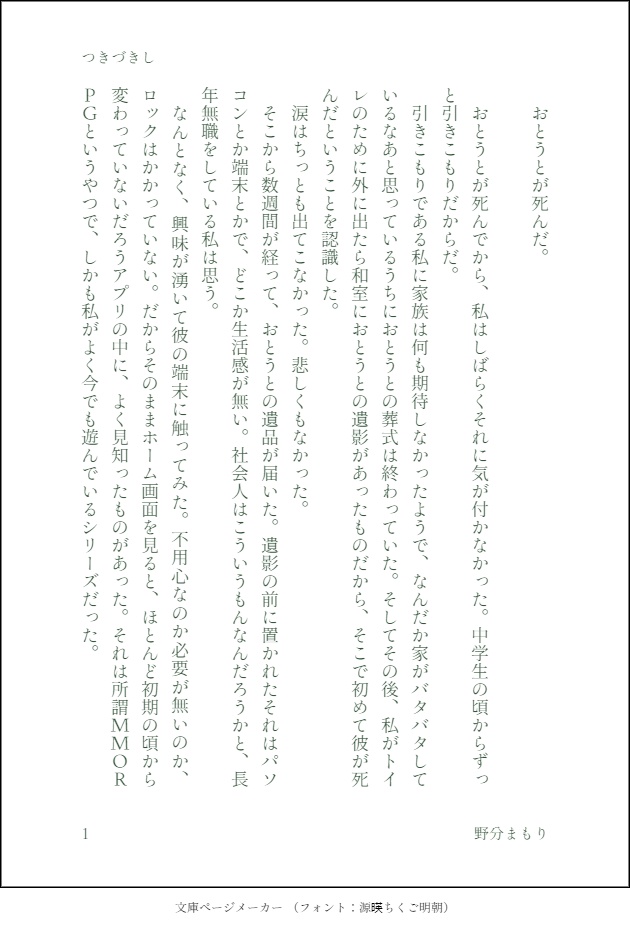 つきづきし
おとうとが死んだ。
おとうとが死んでから、私はしばらくそれに気が付かなかった。中学生の頃からずっ
と引きこもりだからだ。
引きこもりである私に家族は何も期待しなかったようで、なんだか家がバタバタして
いるなあと思っているうちにおとうとの葬式は終わっていた。そしてその後、私がトイ
レのために外に出たら和室におとうとの遺影があったものだから、そこで初めて彼が死
んだということを認識した。
涙はちっとも出てこなかった。悲しくもなかった。
そこから数週間が経って、おとうとの遺品が届いた。遺影の前に置かれたそれはパソ
コンとか端末とかで、どこか生活感が無い。社会人はこういうもんなんだろうかと、長
年無職をしている私は思う。
なんとなく、興味が湧いて彼の端末に触ってみた。不用心なのか必要が無いのか、
ロックはかかっていない。だからそのままホーム画面を見ると、ほとんど初期の頃から
変わっていないだろうアプリの中に、よく見知ったものがあった。それは所謂ＭＭＯＲ
ＰＧというやつで、しかも私がよく今でも遊んでいるシリーズだった。
野分まもり
1
文庫ページメーカー （フォント：源暎ちくご明朝）